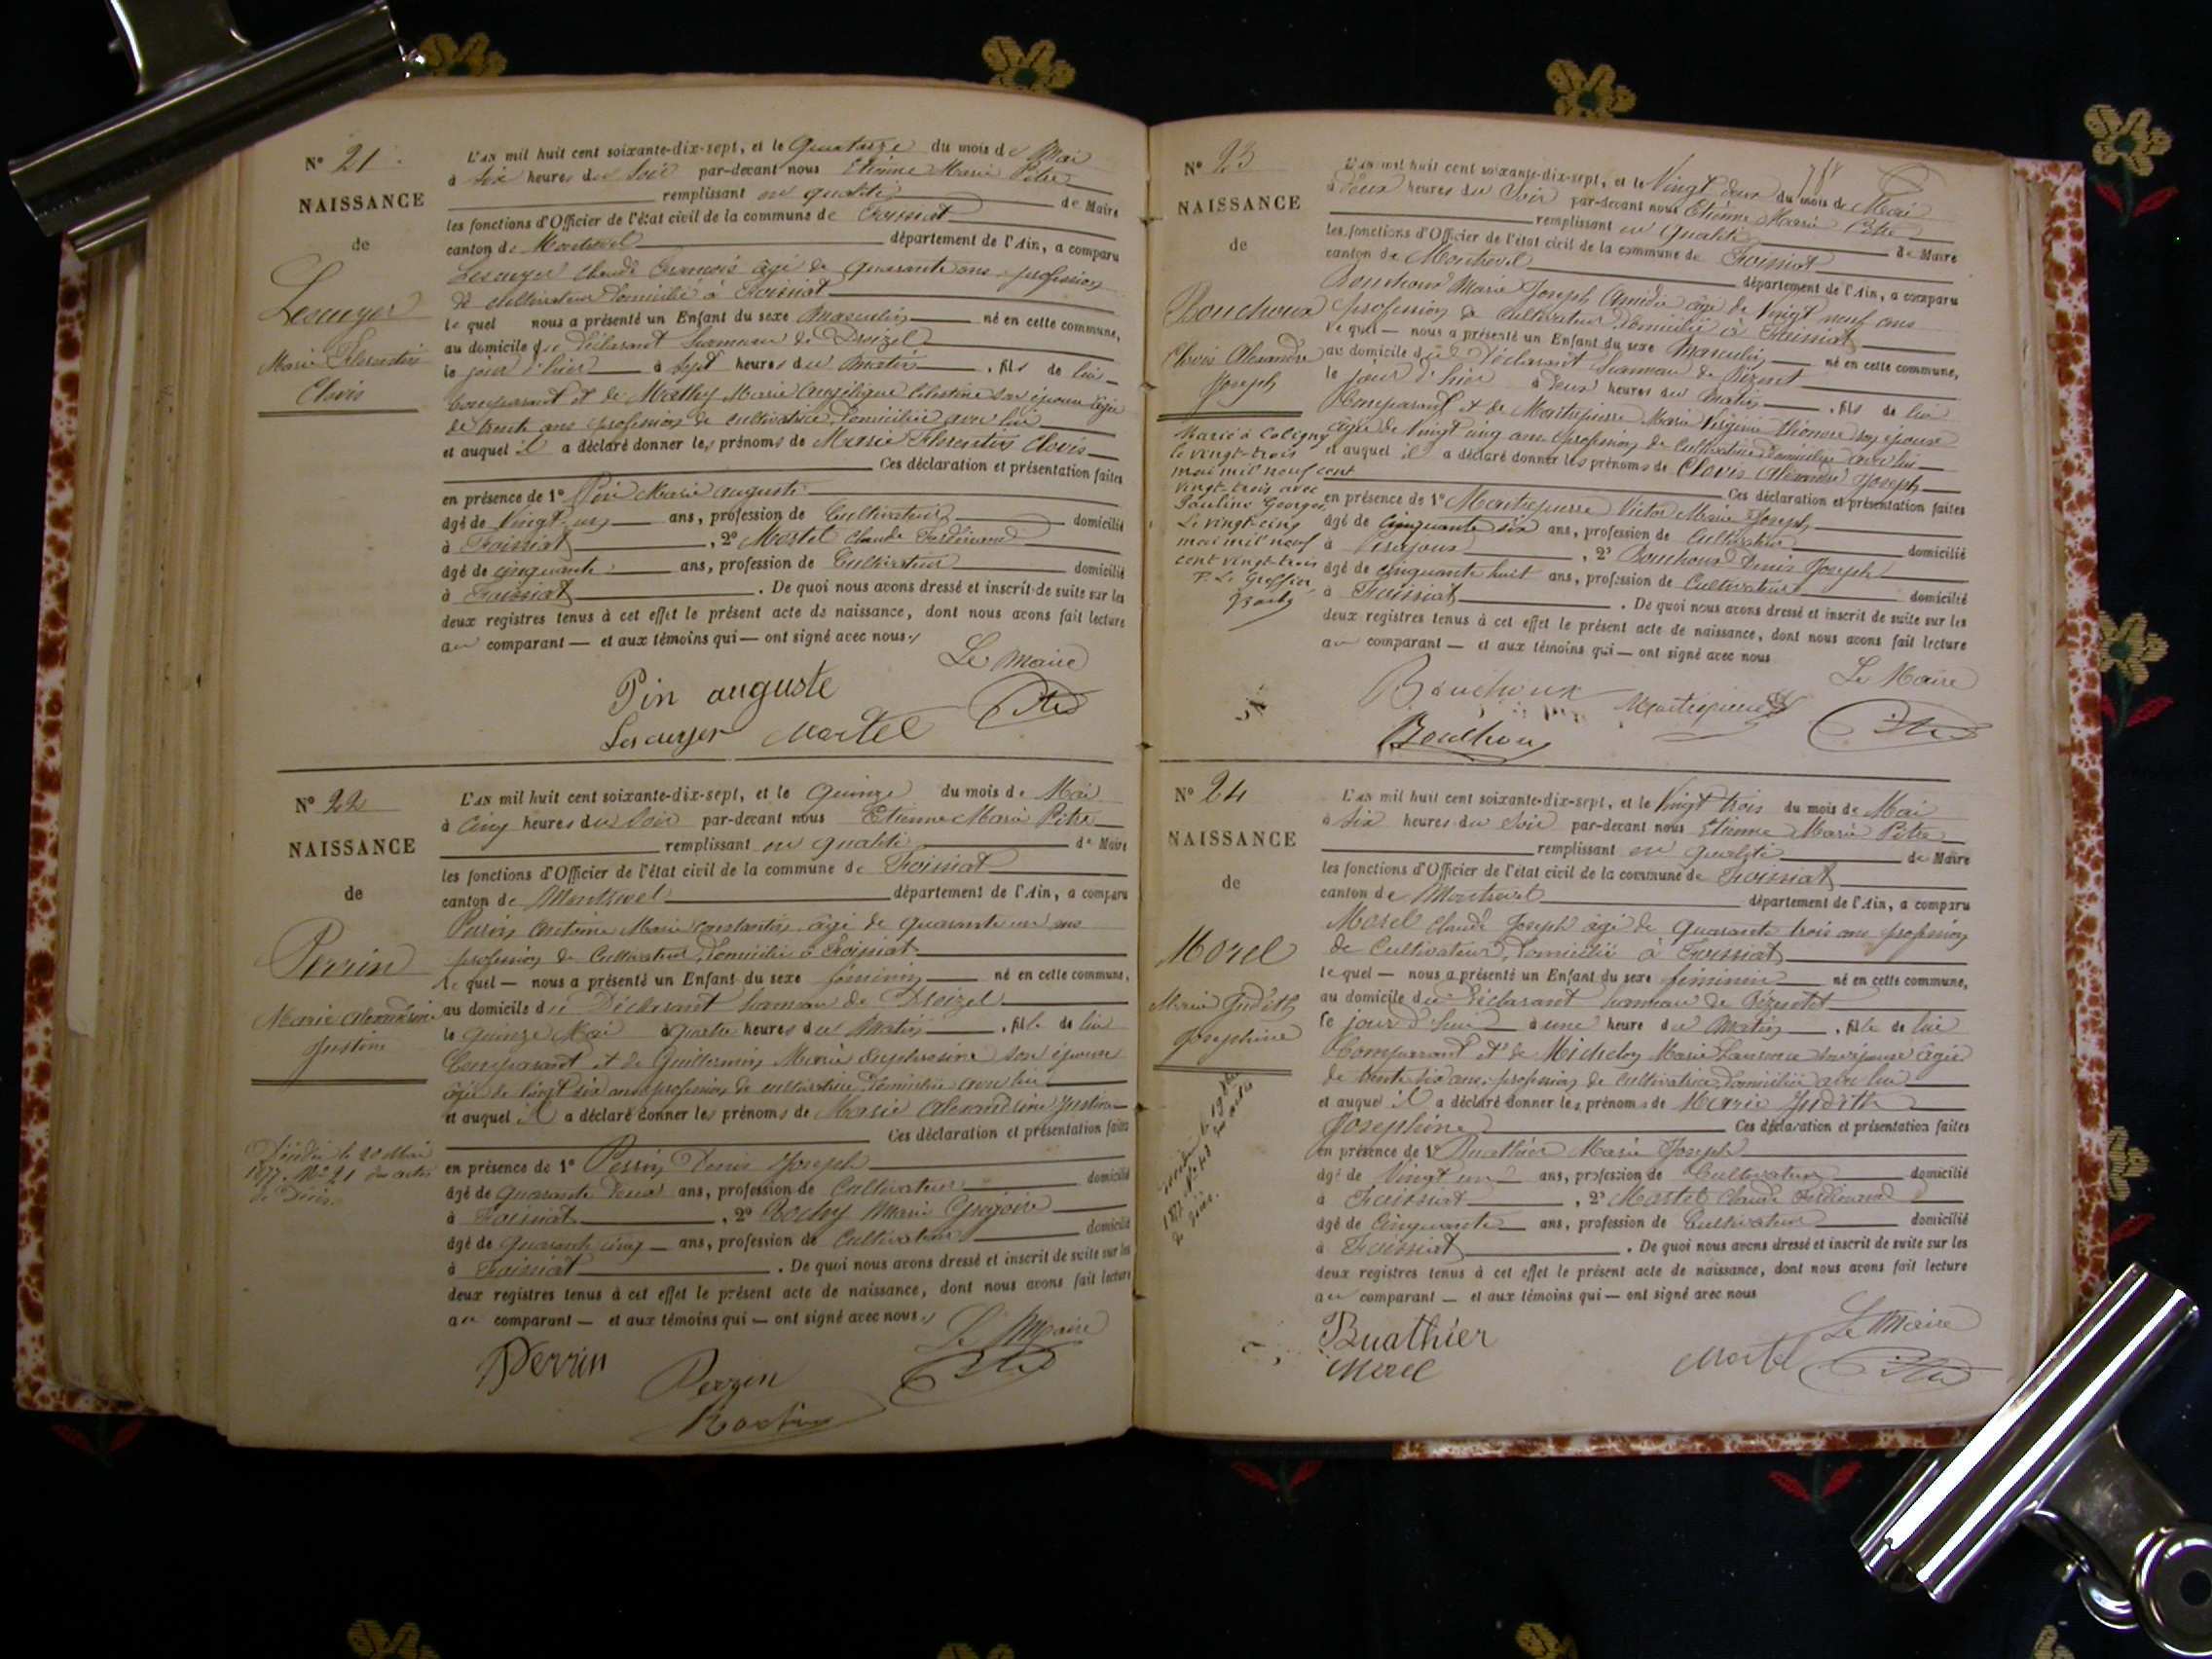 N° 21
NAISSANCE
de
Lescuyer
Marie Florentin
Clovis
L'AN mil huit cent soixante-dix-sept, et le Quatorze du mois de Mai
à Six heures du Soir par-devant nous Etienne Marie Pitre
remplissant en qualité de Maire
les fonctions d'Officier de l'état civil de la commune de Foissiat
canton de Montrevel département de l'Ain, a comparu
Lescuyer Claude François âgé de quarante ans profession
de cultivateur domicilié à Foissiat
le quel nous a présenté un Enfant du sexe Masculin né en cette commune,
au domicile du Déclarant hameau de Dreizel
le jour d'hier à Sept heures du Matin, fils de lui
Comparant et de Mathy Marie Angélique Celestine son épouse âgée
de trente ans profession de cultivatrice domiciliée avec lui
et auquel il a déclaré donner les prénoms de Marie Florentin Clovis
Ces déclaration et présentation faites
en présence de 1° Pin Marie Auguste
âgé de Vingt-un ans, profession de Cultivateur domicilié
à Foissiat, 2° Martel Claude Ferdinand
âgé de cinquante ans, profession de Cultivateur domicilié
à Foissiat. De quoi nous avons dressé et inscrit de suite sur les
deux registres tenus à cet effet le présent acte de naissance, dont nous avons fait lecture
au comparant — et aux témoins qui — ont signé avec nous
Le Maire
Pin auguste
Lescuyer Martel Pitre
N° 22
NAISSANCE
de
Perrin
Marie Alexandrine
Justine
Décédée le 20 Mai
1877. N° 21 des actes
de Décès.
L'AN mil huit cent soixante-dix-sept, et le Quinze du mois de Mai
à Cinq heures du Soir par-devant nous Etienne Marie Pitre
remplissant en qualité de Maire
les fonctions d'Officier de l'état civil de la commune de Foissiat
canton de Montrevel département de l'Ain, a comparu
Perrin Antoine Marie Constantin âgé de quarante un ans
profession de Cultivateur, domicilié à Foissiat
le quel — nous a présenté un Enfant du sexe féminin né en cette commune,
au domicile du Déclarant hameau de Dreizel
le quinze Mai à quatre heures du Matin, fille de lui
Comparant et de Guillermin Marie Euphrosine son épouse
âgée de vingt six ans profession de cultivatrice domiciliée avec lui
et auquel il a déclaré donner les prénoms de Marie Alexandrine Justine
Ces déclaration et présentation faites
en présence de 1° Perrin Denis Joseph
âgé de quarante deux ans, profession de Cultivateur domicilié
à Foissiat, 2° Rochy Marie Grégoire
âgé de quarante cinq — ans, profession de Cultivateur domicilié
à Foissiat. De quoi nous avons dressé et inscrit de suite sur les
deux registres tenus à cet effet le présent acte de naissance, dont nous avons fait lecture
au comparant — et aux témoins qui — ont signé avec nous
Le Maire
Perrin Perrin Pitre
Rochy
N° 23
NAISSANCE
de
Bouchoux
Clovis Alexandre
Joseph
Marié à Coligny
le vingt-trois
mai mil neuf cent
vingt-trois avec
Pauline Georges
Le vingt-cinq
mai mil neuf
cent vingt-trois
P. Le Greffier
L'AN mil huit cent soixante-dix-sept, et le Vingt deux du mois de Mai
à Deux heures du Soir par-devant nous Etienne Marie Pitre
remplissant en qualité de Maire
les fonctions d'Officier de l'état civil de la commune de Foissiat
canton de Montrevel département de l'Ain, a comparu
Bouchoux Marie Joseph Amédée âgé de Vingt neuf ans
profession de Cultivateur domicilié à Foissiat
le quel — nous a présenté un Enfant du sexe Masculin né en cette commune,
au domicile du Déclarant hameau de Bézentet
le jour d'hier à Deux heures du Matin, fils de lui
Comparant et de Montrepierre Marie Virginie Eléonore son épouse
âgée de Vingt cinq ans profession de Cultivatrice domiciliée avec lui
et auquel il a déclaré donner les prénoms de Clovis Alexandre Joseph
Ces déclaration et présentation faites
en présence de 1° Montrepierre Victor Marie Joseph
âgé de Cinquante six ans, profession de Cultivateur domicilié
à, 2° Bouchoux Denis Joseph
âgé de cinquante huit ans, profession de Cultivateur domicilié
à Foissiat. De quoi nous avons dressé et inscrit de suite sur les
deux registres tenus à cet effet le présent acte de naissance, dont nous avons fait lecture
au comparant — et aux témoins qui — ont signé avec nous
Le Maire
Bouchoux Montrepierre Pitre
Bouchoux
N° 24
NAISSANCE
de
Morel
Marie Judith
Joséphine
L'AN mil huit cent soixante-dix-sept, et le Vingt trois du mois de Mai
à Six heures du Soir par-devant nous Etienne Marie Pitre
remplissant en qualité de Maire
les fonctions d'Officier de l'état civil de la commune de Foissiat
canton de Montrevel département de l'Ain, a comparu
Morel Claude Joseph âgé de quarante trois ans profession
de Cultivateur, domicilié à Foissiat
le quel — nous a présenté un Enfant du sexe féminin né en cette commune,
au domicile du Déclarant hameau de Bézentet
le jour d'hui à une heure du Matin, fille de lui
Comparant et de Michelon Marie Laurence son épouse âgée
de trente six ans, profession de cultivatrice, domiciliée avec lui
et auquel il a déclaré donner les prénoms de Marie Judith
Joséphine Ces déclaration et présentation faites
en présence de 1° Buathier Marie Joseph
âgé de Vingt un ans, profession de Cultivateur domicilié
à Foissiat, 2° Martel Claude Ferdinand
âgé de Cinquante ans, profession de Cultivateur domicilié
à Foissiat. De quoi nous avons dressé et inscrit de suite sur les
deux registres tenus à cet effet le présent acte de naissance, dont nous avons fait lecture
au comparant — et aux témoins qui — ont signé avec nous
Le Maire
Buathier
Morel Martel Pitre